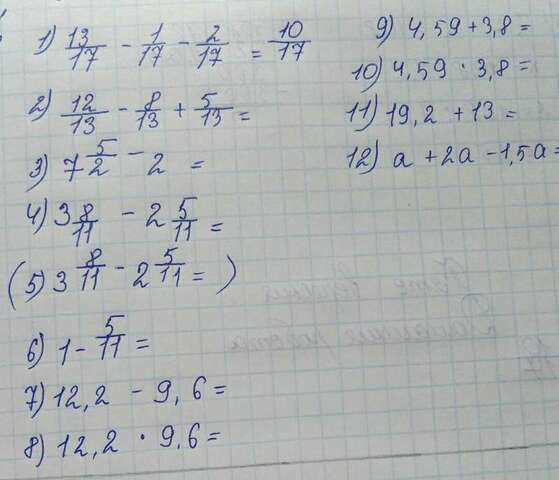 1) 13/17 - 1/17 - 2/17 = 10/17
2) 12/13 - 8/13 + 5/13 =
3) 7 5/2 - 2 =
4) 3 8/11 - 2 5/11 =
(5) 3 8/11 - 2 5/11 = )
6) 1 - 5/11 =
7) 12,2 - 9,6 =
8) 12,2 · 9,6 =
9) 4,59 + 3,8 =
10) 4,59 · 3,8 =
11) 19,2 + 13 =
12) a + 2a - 1,5a =